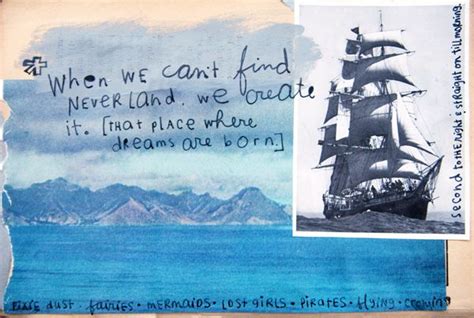 When we can't find
NEVERLAND. we create
it. [THAT PLACE WHERE
dreams are born.]
second to the right & straight on till morning
Pixie dust. fairies • mermaids • lost girls • pirates • flying •